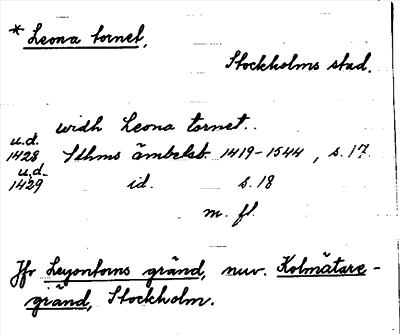 * Leona tornet.
Stockholms stad.
widh Leona tornet..
u.d.
1428 Sthms ämbetsb. 1419-1544, s. 17.
u.d.
1429 id. s. 18
m. fl.
Jfr Leyontorns gränd, nuv. Kolmätare-
gränd, Stockholm.